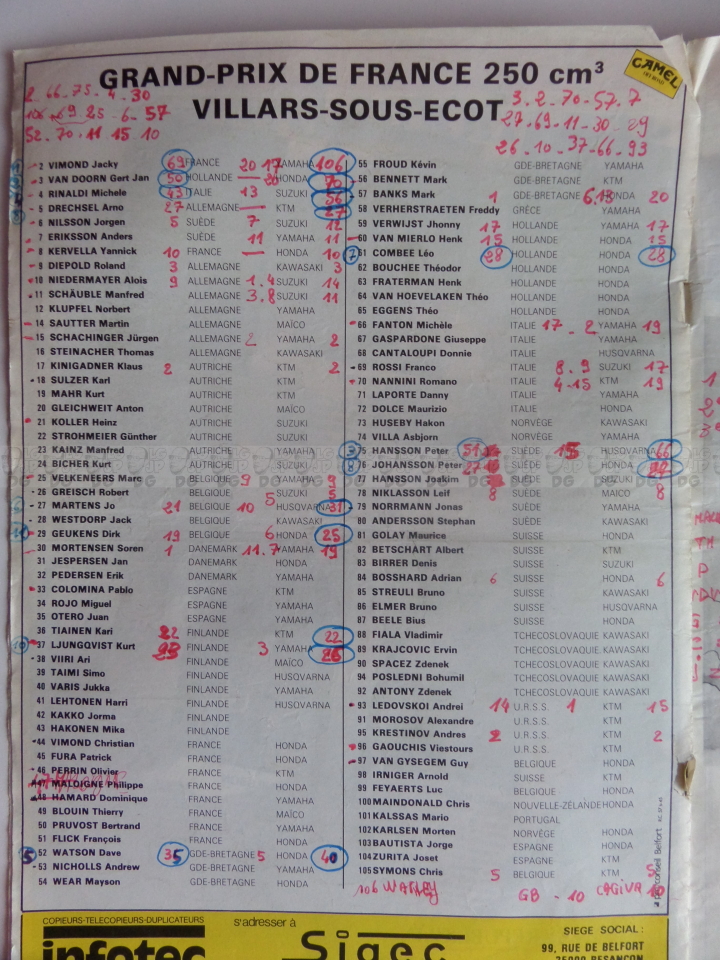 GRAND-PRIX DE FRANCE 250 cm³
CAMEL
VILLARS-SOUS-ECOT
2 66-75 4-30
69 25 6-57
52 70 11 15 10
3.2-70-57.7
27-69-11-30-29
26-10-37-66-93
2 VIMOND Jacky 69 FRANCE 20 17 YAMAHA 106
3 VAN DOORN Gert Jan 50 HOLLANDE 20 HONDA 70
4 RINALDI Michele 43 ITALIE 13 SUZUKI 56
5 DRECHSEL Arno 27 ALLEMAGNE KTM 27
6 NILSSON Jorgen 5 SUÈDE 7 SUZUKI 12
7 ERIKSSON Anders SUÈDE 11 YAMAHA 11
8 KERVELLA Yannick 10 FRANCE HONDA 10
9 DIEPOLD Roland 3 ALLEMAGNE KAWASAKI 3
10 NIEDERMAYER Alois 9 ALLEMAGNE 1.4 SUZUKI 14
11 SCHÄUBLE Manfred ALLEMAGNE 3.8 SUZUKI 11
12 KLUPFEL Norbert ALLEMAGNE YAMAHA
14 SAUTTER Martin ALLEMAGNE MAÏCO
15 SCHACHINGER Jürgen ALLEMAGNE 2 YAMAHA 2
16 STEINACHER Thomas ALLEMAGNE KAWASAKI
17 KINIGADNER Klaus 2 AUTRICHE KTM 2
18 SULZER Karl AUTRICHE KTM
19 MAHR Kurt AUTRICHE KTM
20 GLEICHWEIT Anton AUTRICHE MAÏCO
21 KOLLER Heinz AUTRICHE SUZUKI
22 STROHMEIER Günther AUTRICHE SUZUKI
23 KAINZ Manfred AUTRICHE YAMAHA
24 BICHER Kurt AUTRICHE SUZUKI
25 VELKENEERS Marc BELGIQUE 9 YAMAHA 9
26 GREISCH Robert BELGIQUE 5 SUZUKI 5
27 MARTENS Jo 21 BELGIQUE 10 HUSQVARNA 31
28 WESTDORP Jack BELGIQUE KAWASAKI
29 GEUKENS Dirk 19 BELGIQUE 6 HONDA 25
30 MORTENSEN Soren 1 DANEMARK 11.7 YAMAHA 19
31 JESPERSEN Jan DANEMARK HONDA
32 PEDERSEN Erik DANEMARK YAMAHA
33 COLOMINA Pablo ESPAGNE KTM
34 ROJO Miguel ESPAGNE YAMAHA
35 OTERO Juan ESPAGNE YAMAHA
36 TIAINEN Kari 22 FINLANDE KTM 22
37 LJUNGQVIST Kurt 23 FINLANDE 3 YAMAHA 26
38 VIIRI Ari FINLANDE MAÏCO
39 TAIMI Simo FINLANDE HUSQVARNA
40 VARIS Jukka FINLANDE YAMAHA
41 LEHTONEN Harri FINLANDE HUSQVARNA
42 KAKKO Jorma FINLANDE
43 HAKONEN Mika FINLANDE
44 VIMOND Christian FRANCE HONDA
45 FURA Patrick FRANCE HONDA
46 PERRIN Olivier FRANCE KTM
47 MALOIGNE Philippe FRANCE HONDA
48 HAMARD Dominique FRANCE YAMAHA
49 BLOUIN Thierry FRANCE MAÏCO
50 PRUVOST Bertrand FRANCE YAMAHA
51 FLICK François FRANCE HONDA
52 WATSON Dave 35 GDE-BRETAGNE 5 HONDA 40
53 NICHOLLS Andrew GDE-BRETAGNE YAMAHA
54 WEAR Mayson GDE-BRETAGNE HONDA
55 FROUD Kévin GDE-BRETAGNE YAMAHA
56 BENNETT Mark GDE-BRETAGNE KTM
57 BANKS Mark 1 GDE-BRETAGNE 6.13 HONDA 20
58 VERHERSTRAETEN Freddy GRÈCE YAMAHA
59 VERWIJST Jhonny 17 HOLLANDE YAMAHA 17
60 VAN MIERLO Henk 15 HOLLANDE HONDA 15
61 COMBEE Léo 28 HOLLANDE HONDA 28
62 BOUCHEE Théodor HOLLANDE HONDA
63 FRATERMAN Henk HOLLANDE HONDA
64 VAN HOEVELAKEN Théo HOLLANDE HONDA
65 EGGENS Théo HOLLANDE HONDA
66 FANTON Michèle ITALIE 17 - 2 YAMAHA 19
67 GASPARDONE Giuseppe ITALIE YAMAHA
68 CANTALOUPI Donnie ITALIE HUSQVARNA
69 ROSSI Franco ITALIE 8.9 SUZUKI 17
70 NANNINI Romano ITALIE 4-15 KTM 19
71 LAPORTE Danny ITALIE YAMAHA
72 DOLCE Maurizio ITALIE HONDA
73 HUSEBY Hakon NORVÈGE KAWASAKI
74 VILLA Asbjorn NORVÈGE YAMAHA
75 HANSSON Peter 51 SUÈDE 15 HUSQVARNA 66
76 JOHANSSON Peter SUÈDE HONDA
77 HANSSON Joakim SUÈDE SUZUKI
78 NIKLASSON Leif 8 SUÈDE MAÏCO 8
79 NORRMANN Jonas SUÈDE YAMAHA
80 ANDERSSON Stephan SUÈDE KAWASAKI
81 GOLAY Maurice SUISSE HONDA
82 BETSCHART Albert SUISSE KTM
83 BIRRER Denis SUISSE SUZUKI
84 BOSSHARD Adrian 6 SUISSE HONDA 6
85 STREULI Bruno SUISSE KTM
86 ELMER Bruno SUISSE HUSQVARNA
87 BEELE Bius SUISSE HONDA
88 FIALA Vladimir TCHECOSLOVAQUIE KAWASAKI
89 KRAJCOVIC Ervin TCHECOSLOVAQUIE KAWASAKI
90 SPACEZ Zdenek TCHECOSLOVAQUIE KAWASAKI
94 POSLEDNI Bohumil TCHECOSLOVAQUIE KAWASAKI
92 ANTONY Zdenek TCHECOSLOVAQUIE KAWASAKI
93 LEDOVSKOI Andrei 14 U.R.S.S. 1 KTM 15
91 MOROSOV Alexandre U.R.S.S. KTM
95 KRESTINOV Andres 2 U.R.S.S. KTM 2
96 GAOUCHIS Viestours U.R.S.S. KTM
97 VAN GYSEGEM Guy BELGIQUE HONDA
98 IRNIGER Arnold SUISSE KTM
99 FEYAERTS Luc BELGIQUE HONDA
100 MAINDONALD Chris NOUVELLE-ZÉLANDE HONDA
101 KALSSAS Mario PORTUGAL
102 KARLSEN Morten NORVÈGE HONDA
103 BAUTISTA Jorge ESPAGNE HONDA
104 ZURITA Joset ESPAGNE KTM
105 SYMONS Chris 5 BELGIQUE KTM 5
106 WATLEY GB - 10 CAGIVA 10
COPIEURS-TELECOPIEURS-DUPLICATEURS
infotec
s'adresser à
Sigec
SIEGE SOCIAL :
99, RUE DE BELFORT
25000 BESANÇON